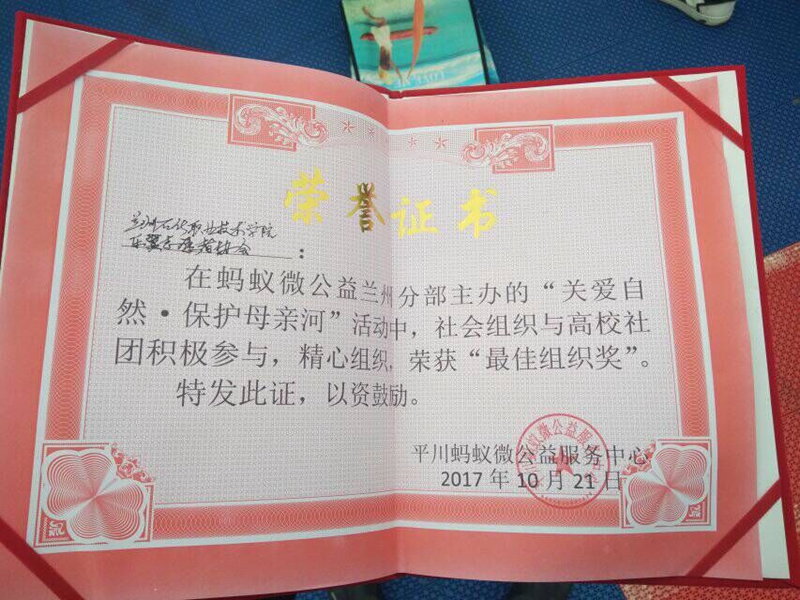 荣誉证书
兰州石化职业技术学院
乐翼志愿者协会:
在蚂蚁微公益兰州分部主办的“关爱自
然·保护母亲河”活动中，社会组织与高校社
团积极参与，精心组织，荣获“最佳组织奖”。
特发此证，以资鼓励。
平川蚂蚁微公益服务中心
2017 年 10 月 21 日